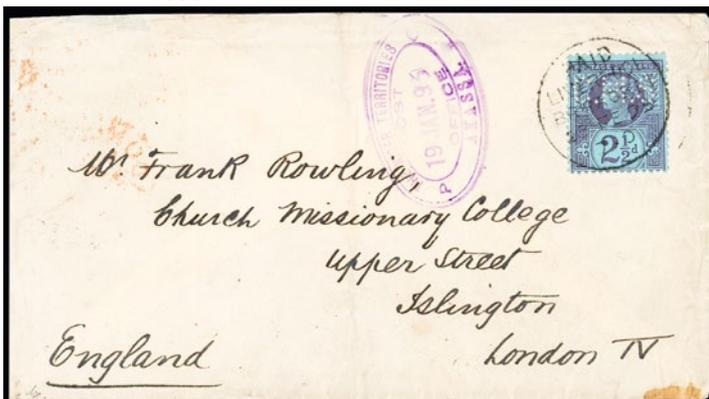 NIGER TERRITORIES
POST OFFICE
19 JAN. 95
AKASSA
PAID
LIV
B
2½d
Mr. Frank Rowling,
Church Missionary College
Upper Street
Islington
London N
England